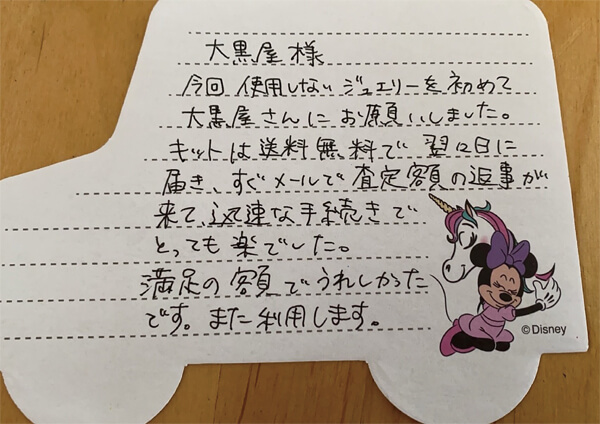 大黒屋様
今回使用しないジュエリーを初めて
大黒屋さんにお願いしました。
キットは送料無料で翌日に
届き、すぐメールで査定額の返事が
来て、迅速な手続きで
とっても楽でした。
満足の額でうれしかった
です。また利用します。
©Disney